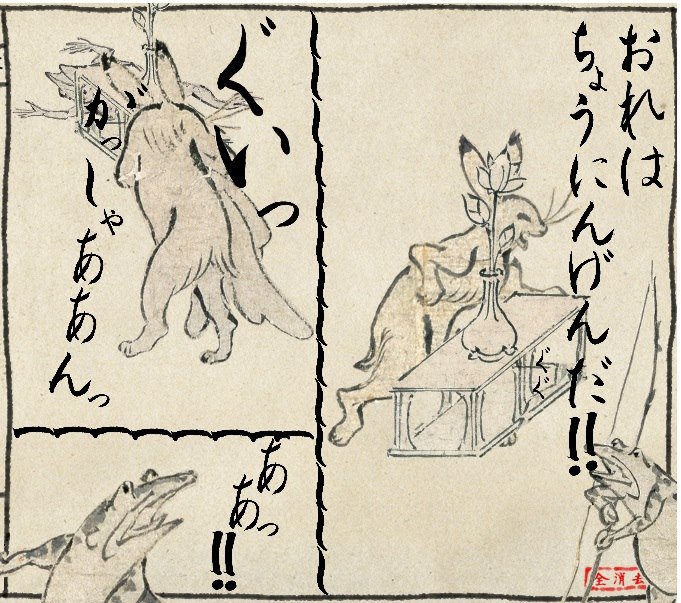 おれは
ちょうにんげんだ!!
ぐぐ
ぐいっ
がっしゃああんっ
ああっ!!
全消去